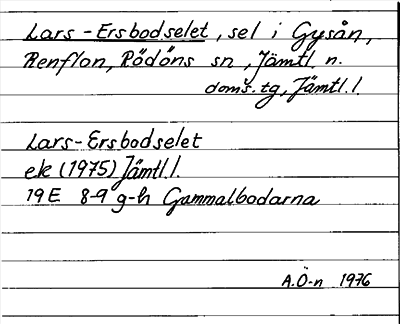 Lars-Ersbodselet, sel i Gysån,
Renflon, Rödöns sn, Jämtl. n.
doms. tg, Jämtl. l.
Lars-Ersbodselet
ek (1975) Jämtl. l.
19E 8-9 g-h Gammalbodarna
A.Ö-n 1976